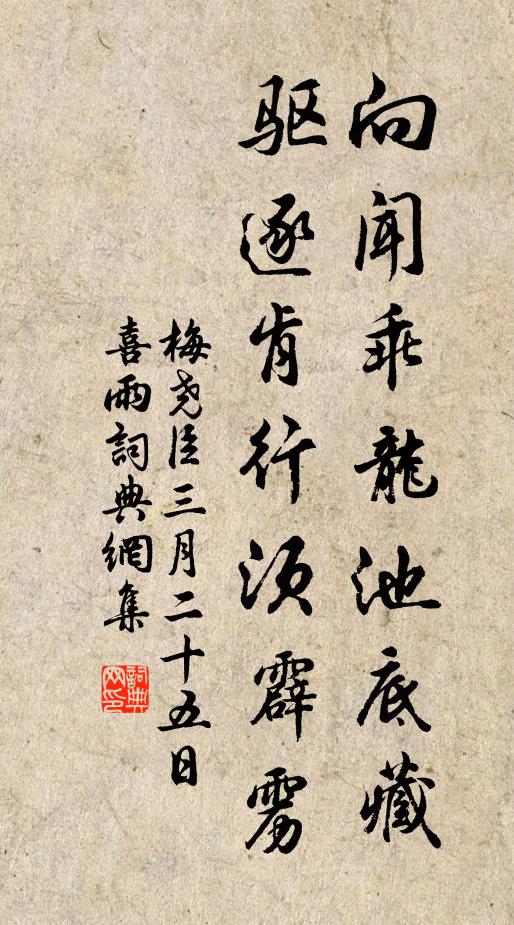 向闻乖龍池底藏
驱逐肯行须霹雳
梅尧臣三月二十五日
喜雨詞典網集
詞典
网印